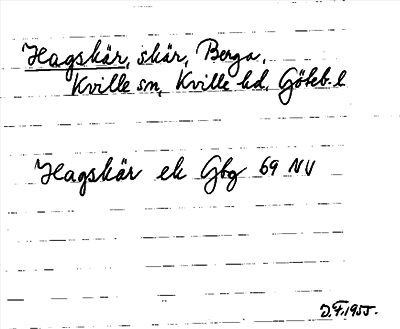 Hagskär, skär, Berga,
Kville sn, Kville hd, Göteb. l
Hagskär ek Gbg 69 NV
J.F. 1955.